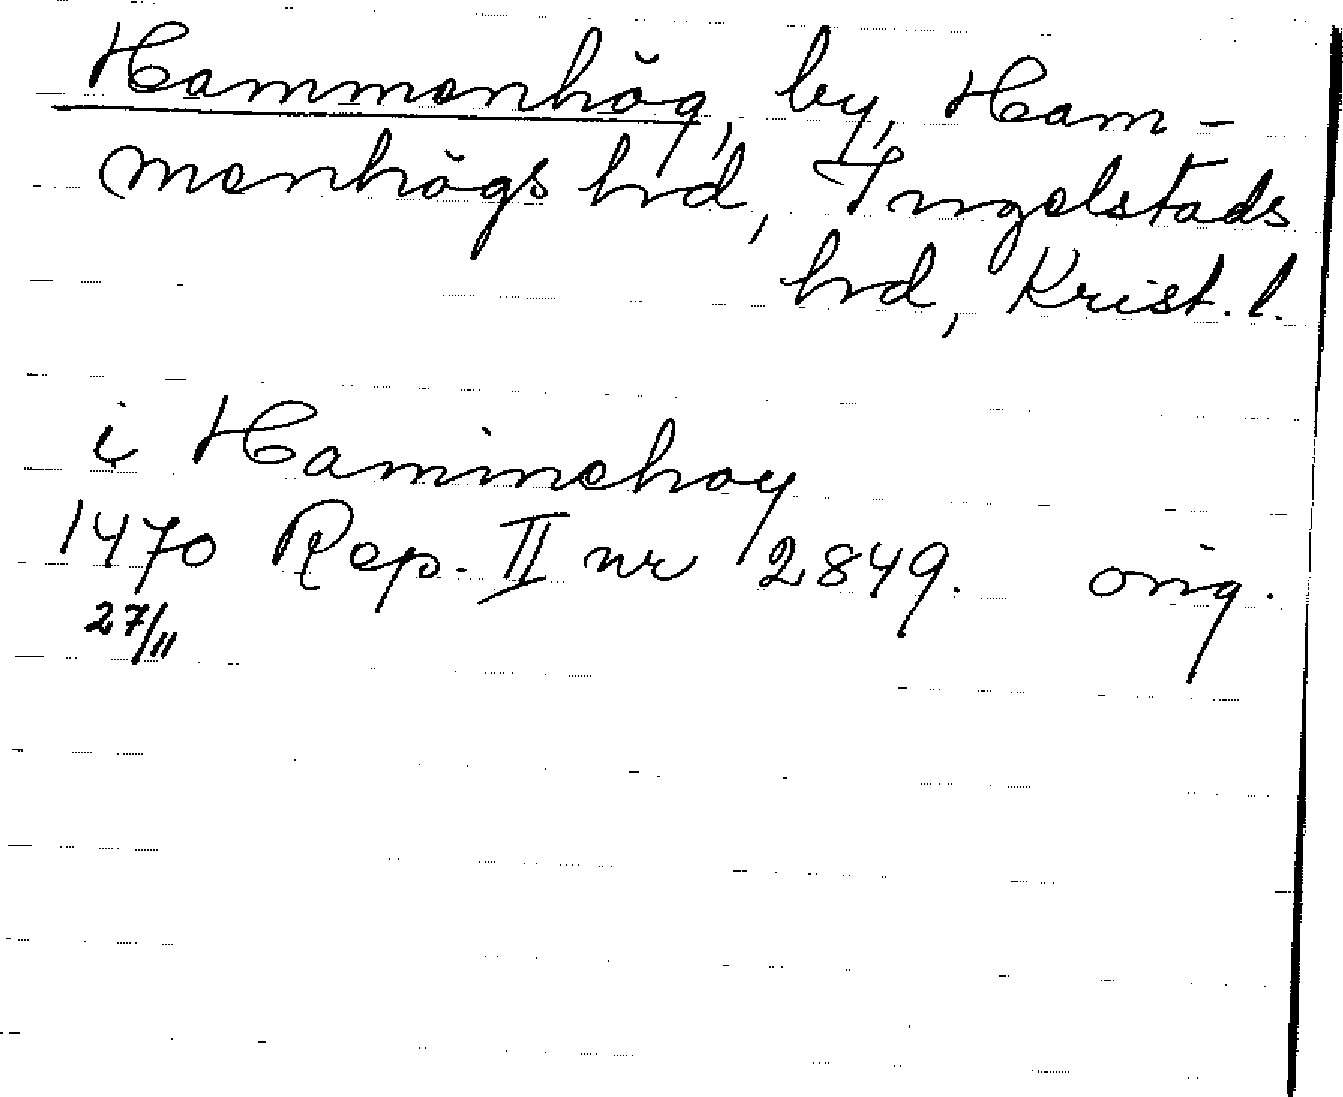 Hammenhög, by, Ham-
menhögs hrd, Ingelstads
hrd, Krist. l.
i Haminehoy
1470 Rep. II nr 2849. orig.
27/11